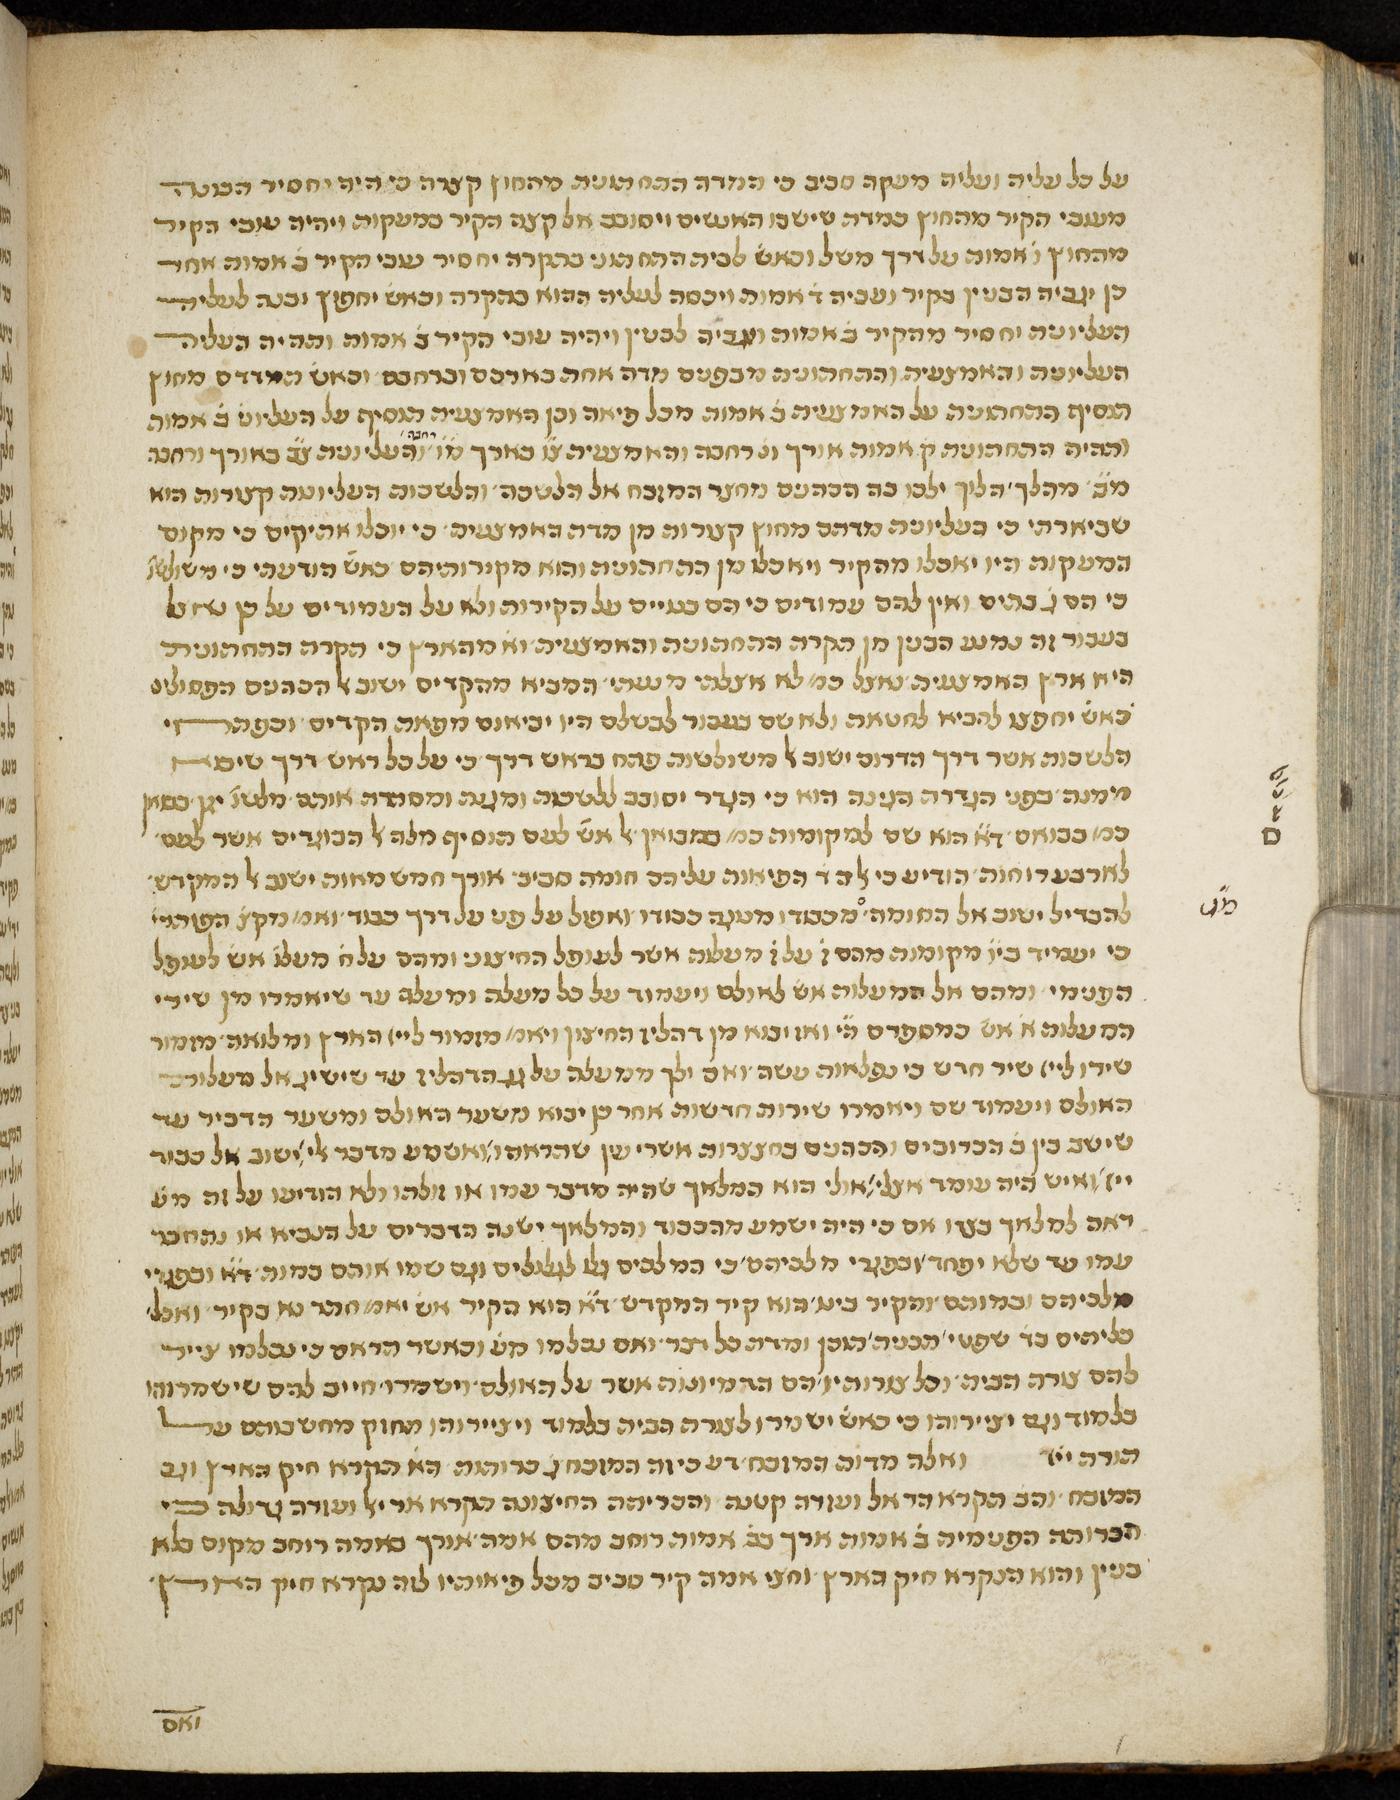 על כל עליה ועליה מעקה סביב כי המדה התחתונית מהחוץ קצרה כי היה יחסיר הבונה
מעובי הקיר מהחוץ כמדה שישבו האנשים ויסובב אל קצה הקיר במעקות ויהיה עובי הקיר
מהחוץ ו אמות על דרך משל וכאש לבית התחתוני בתקרה יחסיר עובי הקיר ב אמות אחר
כן יגביה הבנין בקיר ועביה ד אמות ויכסה לעליה ההוא בהקרה וכאש יחפוץ ובנה לעליה
העליונית יחסיר מהקיר ב אמות ויגביה לבנין ויהיה עובי הקיר ב אמות ותהיה העליה
העליונית והאמצעית והתחתונית מבפנים מדה אחת בארכם וברחבם וכאש תמדדם מחוץ
תוסיף התחתונית על האמצעית ב אמות מכל פיאה וכן האמצעית תוסיף על העליונ ב אמות
ותהיה התחתונית ק אמות אורך ונ רחבה והאמצעית צו בארך מו רחבה והעליונית צב באורך ורחבה
מב מהלך הליך ילכו בה הכהנים מחצר המזבח אל הלשכה והלשכות העליונות קצרות הוא
שביארתי כי בעליונית מדתה מחוץ קצרות מן מדה באמצעית כי יוכלו אתיקים כי מקום
המעקות היו יאכלו מהקיר ויאכלו מן התחתונית והוא מקירותיהם כאש הודעתי כי משולשו
כי הם ג בתים ואין להם עמודים כי הם בנויים על הקירות ולא על העמודים על כן נאצל
בעבור זה נמנע הבנין מן תקרה התחתונית והאמצעית וא מהארץ כי תקרה התחתונית
היא ארץ האמצעית נאצל כמ לא אצלתי מנעתי המביא מהקדים ישוב ל הכהנים הפסולים
כאש יחפצו להביא לחטאת ולאשם בעבור לבשלם היו יביאום מפאת הקדים וכפתחי
הלשכות אשר דרך הדרום ישוב ל משולשות פתח בראש דרך כי על כל ראש דרך שים
ממנה בפני הגדרה הגינה הוא כי הגדר יסובב ללשכות ומגנה ומסתרה אותם מלשו יגן
כמ בבואם ד״א הוא שם למקומות כמ במבואן ל אש לעם הוסיף מלה ל הבוגדים אשר לעם
לארבע רוחות הודיע כי ל ה ד הפיאות עליהם חומה סביב אורך חמש מאות ישוב ל המקדש
להבדיל ישוב אל החומה מכבודו מענה כבודו ואפול על פני על דרך כבוד ואמ מקצ הפותרי
כי יעמיד בין מקומות מהם ז על ז מעלות אשר לעופל החיצוני ומהם על ח מעלו אש לעופל
הפנימי ומהם אל המעלות אש לאולם ויעמוד על כל מעלה ומעלה עד שיאמרו מן שירי
המעלות א אש במספרם הי ואז יבוא מן דהליז החיצון ויאמ מזמור לייי הארץ ומלואה מזמור
שירו לייי שיר חדש כי נפלאות עשה ואם ילך ממעלה על גב הדהליז עד שישיג אל מעלות
האולם ויעמוד שם ויאמרו שירות חדשות אחר כן יבוא משער האולם ומשער הדביר עד
שישב בין ב הכרובים והכהנים בחצצרות אשרי עין שתראהו ואשמע מדבר לי ישוב אל כבוד
ייי ואיש היה עומד אצלי אולי הוא המלאך שהיה מדבר עמו או זולתו ולא הודיעו על זה מע
ראה למלאך בעצו אם כי היה ישמע מהכבוד והמלאך ישנה הדברים על הנביא או נתחבר
עמו עד שלא יפחד ובפגרי מלכיהם כי המלכים גלו לגלולים וגם שמו אותם במות ד״א ובפגרי
מלכיהם ובמותם והקיר ביני הוא קיר המקדש ד״א הוא הקיר אש יאמ חתר נא בקיר ואכל
כליתים כד שפטי תבנית תוכן ומדת כל דבר ואם נכלמו מע וכאשר תראם כי נכלמו צייר
להם צורת הבית וכל צורותיו הם התמיונות אשר על האולם וישמרו חייב להם שישמרוהו
בלמוד וגם יציירוהו כי כאש ישמרו לצורת הבית בלמוד ויציירוהו תחזק מחשבותם על
הורה ייי ואלה מדות המזבח דע כי זה המזבח ג כרותות הא תקרא חיק הארץ וגב
המזבח והב תקרא הראל ועזרה קטנה והכריתה החיצונה תקרא אריל ועזרה גדולה כי
הכרותה הפנימית ב אמות ארך בב אמות רוחב מהם אמה אורך באמה רוחב מקום בלא
בנין והוא הנקרא חיק בארץ וחצי אמה קיר סביב מכל פיאותיו לזה נקרא חיק הארץ
ואם